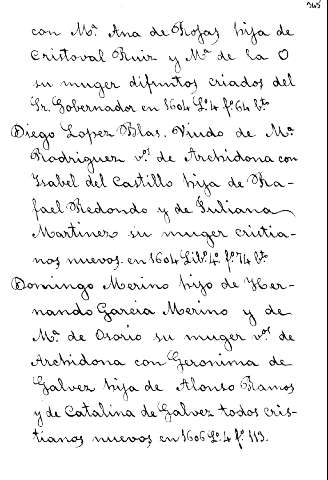 265
con Mª Ana de Rojas hija de
Cristoval Ruiz y Mª de la O
su muger difuntos criados del
Sr. Gobernador en 1604 Lº 4 fº 64 bto
Diego Lopez Blas. Viudo de Mª
Rodriguez vos de Archidona con
Isabel del Castillo hija de Ra-
fael Redondo y de Juliana
Martinez su muger cristia-
nos nuevos. en 1604 Libº 4º fº 74 bto
Domingo Merino hijo de Her-
nando Garcia Merino y de
Mª de Osorio su muger vos de
Archidona con Geronima de
Galvez hija de Alonso Ramos
y de Catalina de Galvez todos cris-
tianos nuevos en 1606 Lº 4 fº 113.